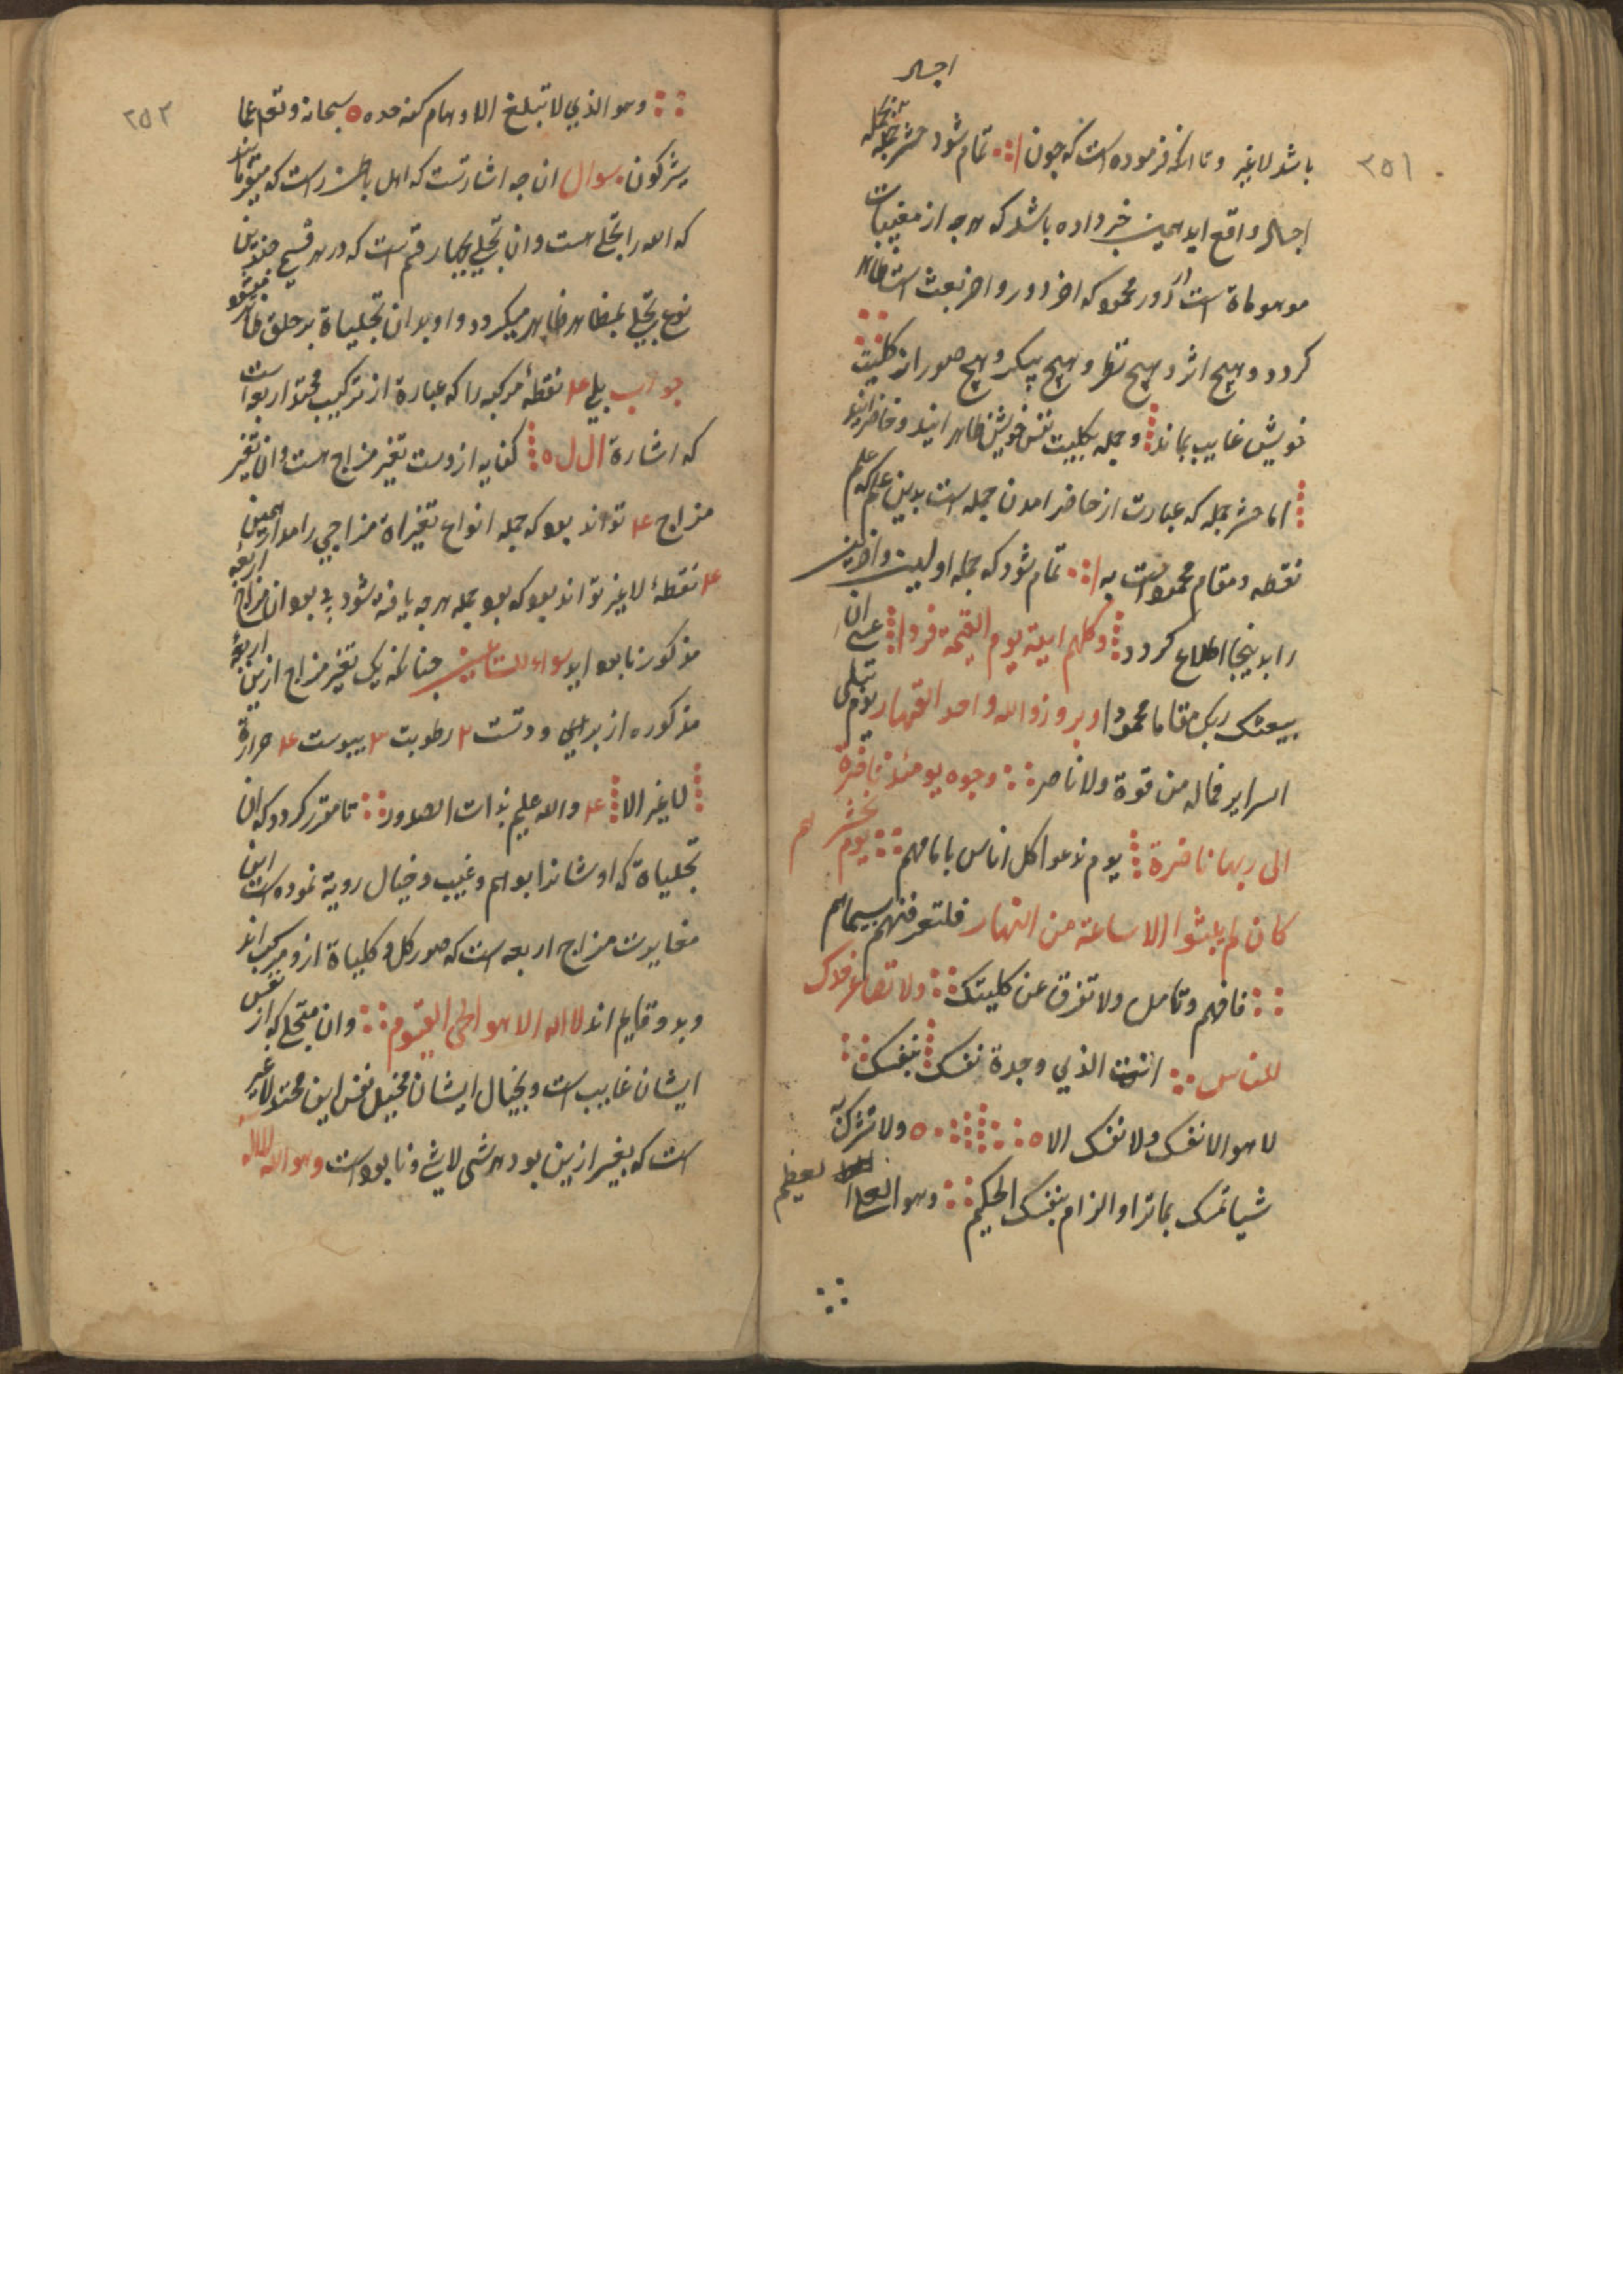 ۲۵۱
اجساد
باشد لاغیر و تا انکه فرموده است که چون ا؞ تمام شود حشر جمله بجمله
اجساد واقع اید همین خبر داده باشد که هر چه از مغیبات
موهوماة است از دور محمود که اخر دور و اخر بعث است ظاهر
کردد و هیچ اثر و هیچ و هیچ پیکر و هیچ صور از کلیت
خویش غایب نماند و جمله بکلیت نفس خویش ظاهر ایند و حاضر ایند
اما حشر جمله که عبارت از حاضر امدن جمله است بدین علم که علم
نقطه و مقام محمود است به ا؞ تمام شود که جمله اولین و اخرین
را بدینجا اطلاع کردد وکلهم اتیه یوم القیمة فردا عسی ان
یبعثک ربک مقاما محمودا وبرزوا لله واحد القهار یوم تبلی
السرایر فماله من قوة ولا ناصر :: وجوه یومئذ ناضرة
الی ربها ناظرة یوم ندعوا کل اناس بامامهم :: یوم نحشرهم
کان لم یلبثوا الا ساعة من النهار فلتعرفنهم بسیماهم
:: فافهم وتامل ولا تفرق عن کلیتک :: ولا تصاعر خدک
للناس :: انت الذی وجدة نفسک بنفسک ::
لا هو الا نفسک ولا نفسک الا ه ولا تشرک به
شیا نفسک بما ترا والزام بنفسک الحکیم :: وهو العلی العظیم
۲۵۲
:: وهو الذی لا تبلغ الاوهام کنه حده ه سبحانه وتعم عما
یشرکون. سوال ان چه اشارتست که اهل باطن راست که
که الله را تجلی هست و ان تجلی بچهار قسم است که در هر قسمی چندین
نوع تجلی بمظاهر ظاهر میکردد و اولا ان تجلیاة بر خلق ظاهر میشود
جواب بلی ۴ نقطهٔ مرکبه را که عبارة از ترکیب محمد اربعه است
که اشارة ال ل ه کنایه ازوست تغیر مزاج هست و ان تغیر
مزاج ۴ تواند بود که جمله انواع تغیراة مزاجی را مدار همین
۴ نقطهٔ لاغیر تواند بود که بود جمله هر چه یافته شود بی بود ان مزاج اربعه
مذکوره نابود اید سواء للسائلین چنانکه یک تغیر مزاج ازین اربعه
مذکوره از برای ودتست ۲ رطوبت ۳ یبوست ۴ حرارة
لاغیر الا ۴ والله علیم بذات الصدور :: تا مقرر کردد که ان
تجلیاة که اوشانرا بوهم و غیب و خیال رویة نموده است این
مزاج اربعه است که صور کل و کلیاة ازو مرکب اند
وبدو قایم اند لا اله الا هو الحی القیوم :: و ان متجلی که از نفس
ایشان غایب است و بخیال ایشان مخیل نفس این محمد لاغیر
است که بغیر ازین بود هر شی لاشی و نابود است وهو الله